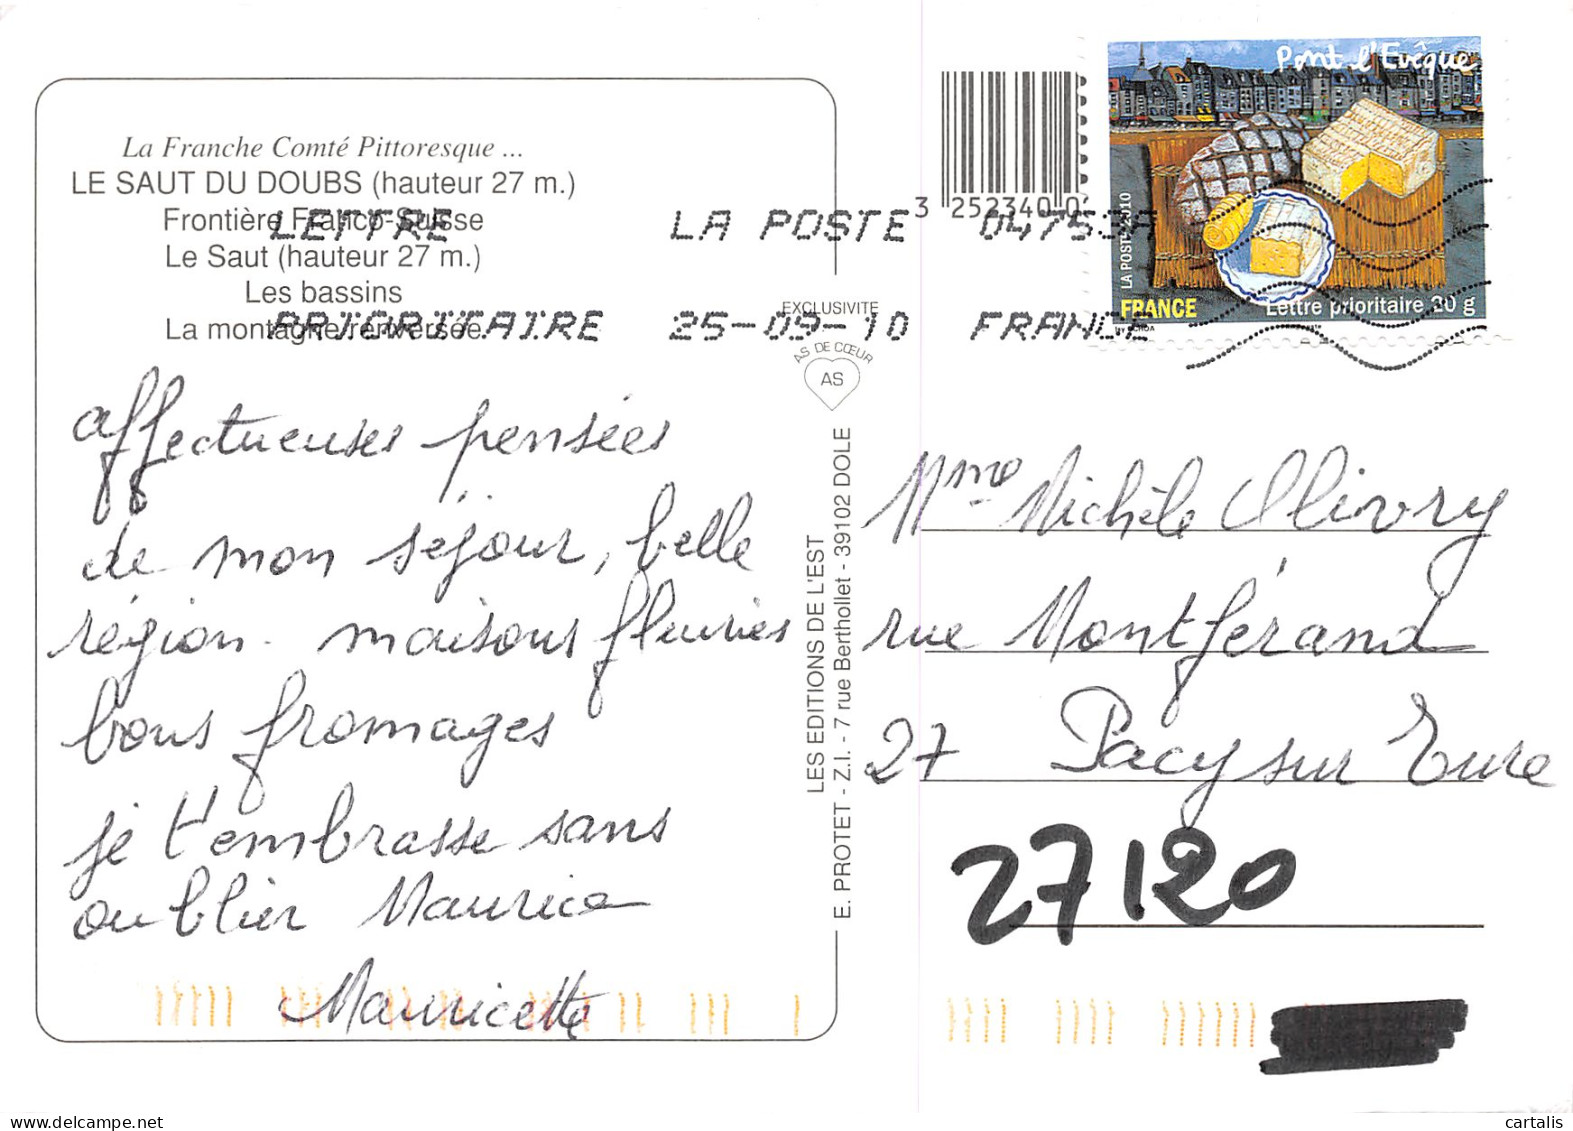 La Franche Comté Pittoresque ...
LE SAUT DU DOUBS (hauteur 27 m.)
Frontière Franco-Suisse
Le Saut (hauteur 27 m.)
Les bassins
La montagne renversée
LETTRE LA POSTE 04753A
PRIORITAIRE 25-09-10 FRANCE
3 252340 0
EXCLUSIVITE
AS DE CŒUR
AS
affectueuses pensées
de mon séjour, belle
région. maisons fleuries
bons fromages
je t'embrasse sans
oublier Maurice
Mauricette
LES EDITIONS DE L'EST
E. PROTET - Z.I. - 7 rue Berthollet - 39102 DOLE
Pont l'Evêque
LA POSTE 2010
FRANCE
Lettre prioritaire 20 g
Mme Michèle Olivry
rue Montférand
27 Pacy sur Eure
27120
cartalis
www.delcampe.net